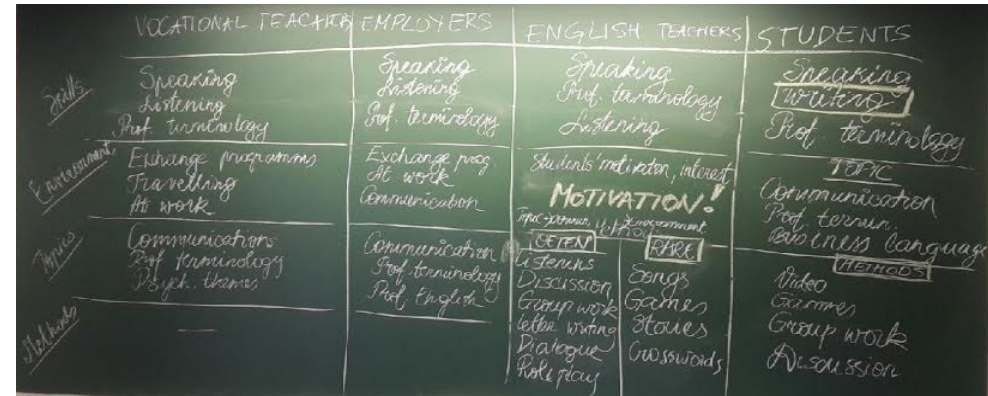 VOCATIONAL TEACHER
EMPLOYERS
ENGLISH TEACHERS
STUDENTS
Skills
Speaking
Listening
Prof. terminology
Speaking
Listening
Prof. terminology
Speaking
Prof. terminology
Listening
Speaking
Writing
Prof. terminology
Environment
Exhange programms
Travelling
At work
Exchange prog.
At work
Communication
Students' motivation, interest
MOTIVATION!
TOPIC
Communication
Prof. termin.
Business language
Topics
Communications
Prof terminology
Psych. themes
Communication
Prof. terminology
Prof. English
OFTEN
Listening
Discussion
Group work
letter writing
Dialogue
Role play
RARE
Songs
Games
Stories
Crosswords
METHODS
Video
Games
Group work
Discussion
Methods
—